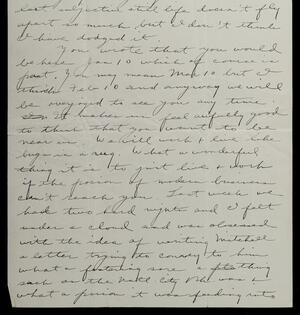 last subjective still life doesn't fly
apart so much, but I don't think
I have dodged it.
You wrote that you would
be here Jan 10 which of course is
past. You may mean Mar 10 but I
think Feb 10 and anyway we will
be overjoyed to see you any time.
It makes us feel awfully good
to think that you want to be
near us. We will work & live like
bugs in a rug. What a wonderful
thing it is to just live & work
if the poison of modern business
can't reach you. Last week we
had two hard nights and I felt
under a cloud and was obsessed
with the idea of writing Mitchell
a letter trying to convey to him
what a festering sore a thing
such as the Natl City Bk was &
what a poison it was feeding into